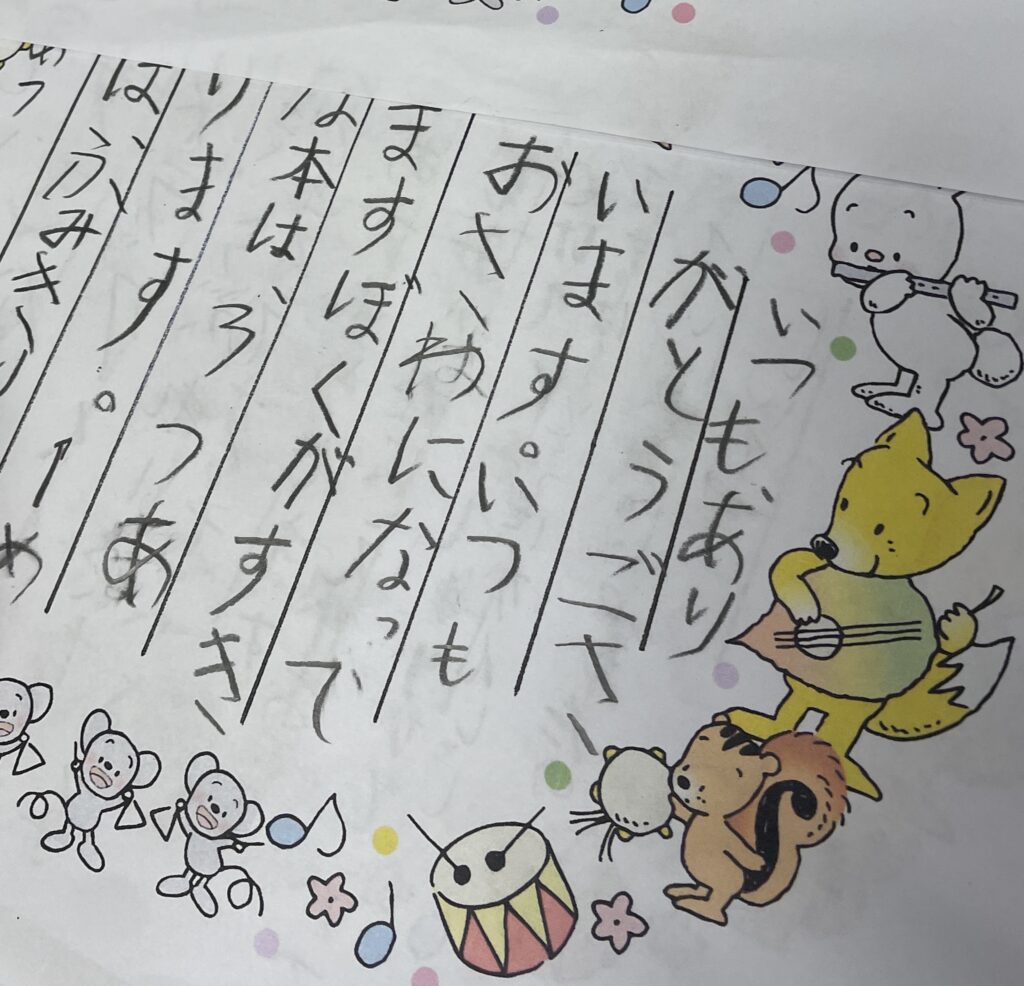 いつもあり
がとうござ
います。いつも
おさ、わになっで
ますぼくがすき
な本は、3つあ
ります。1め
は、ふみきり
っ